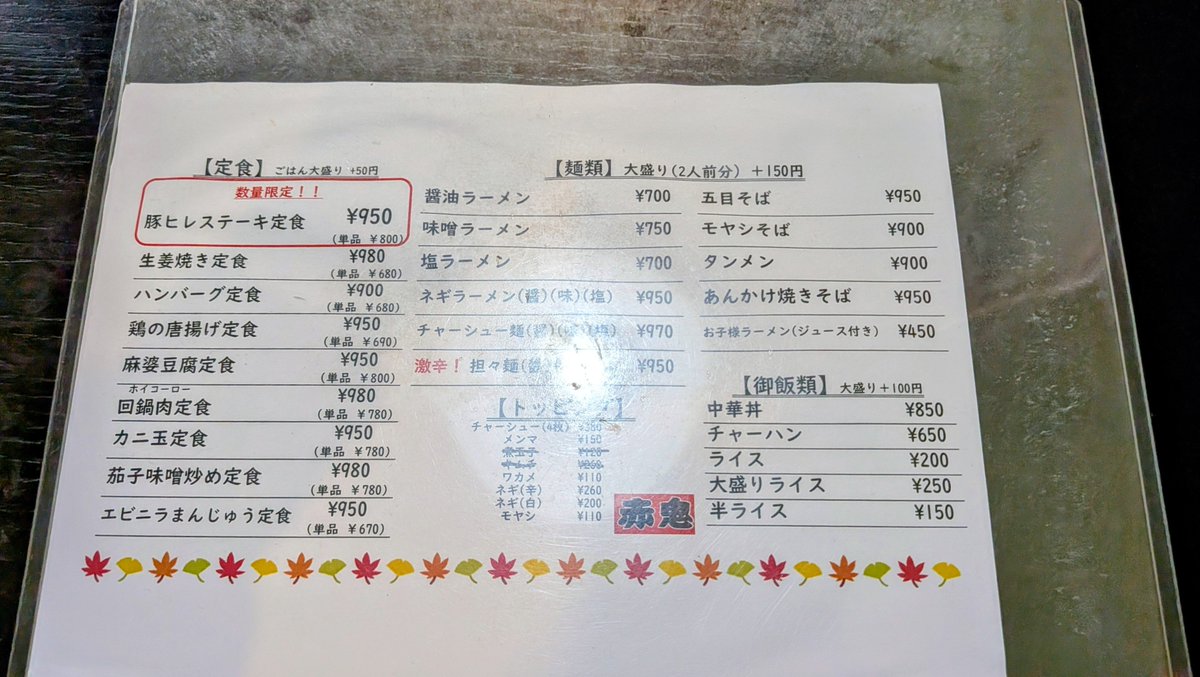 【定食】 ごはん大盛り +50円
数量限定！！
豚ヒレステーキ定食 ¥950
(単品 ¥800)
生姜焼き定食 ¥980
(単品 ¥680)
ハンバーグ定食 ¥900
(単品 ¥680)
鶏の唐揚げ定食 ¥950
(単品 ¥690)
麻婆豆腐定食 ¥950
(単品 ¥800)
ホイコーロー
回鍋肉定食 ¥980
(単品 ¥780)
カニ玉定食 ¥950
(単品 ¥780)
茄子味噌炒め定食 ¥980
(単品 ¥780)
エビニラまんじゅう定食 ¥950
(単品 ¥670)
【麺類】 大盛り(2人前分) +150円
醤油ラーメン ¥700
味噌ラーメン ¥750
塩ラーメン ¥700
ネギラーメン(醤)(味)(塩) ¥950
チャーシュー麺(醤)(味)(塩) ¥970
激辛！ 担々麺(醤) ¥950
五目そば ¥950
モヤシそば ¥900
タンメン ¥900
あんかけ焼きそば ¥950
お子様ラーメン(ジュース付き) ¥450
【トッピング】
チャーシュー(4枚) ¥380
メンマ ¥150
ワカメ ¥110
ネギ(辛) ¥260
ネギ(白) ¥200
モヤシ ¥110
赤鬼
【御飯類】 大盛り+100円
中華丼 ¥850
チャーハン ¥650
ライス ¥200
大盛りライス ¥250
半ライス ¥150